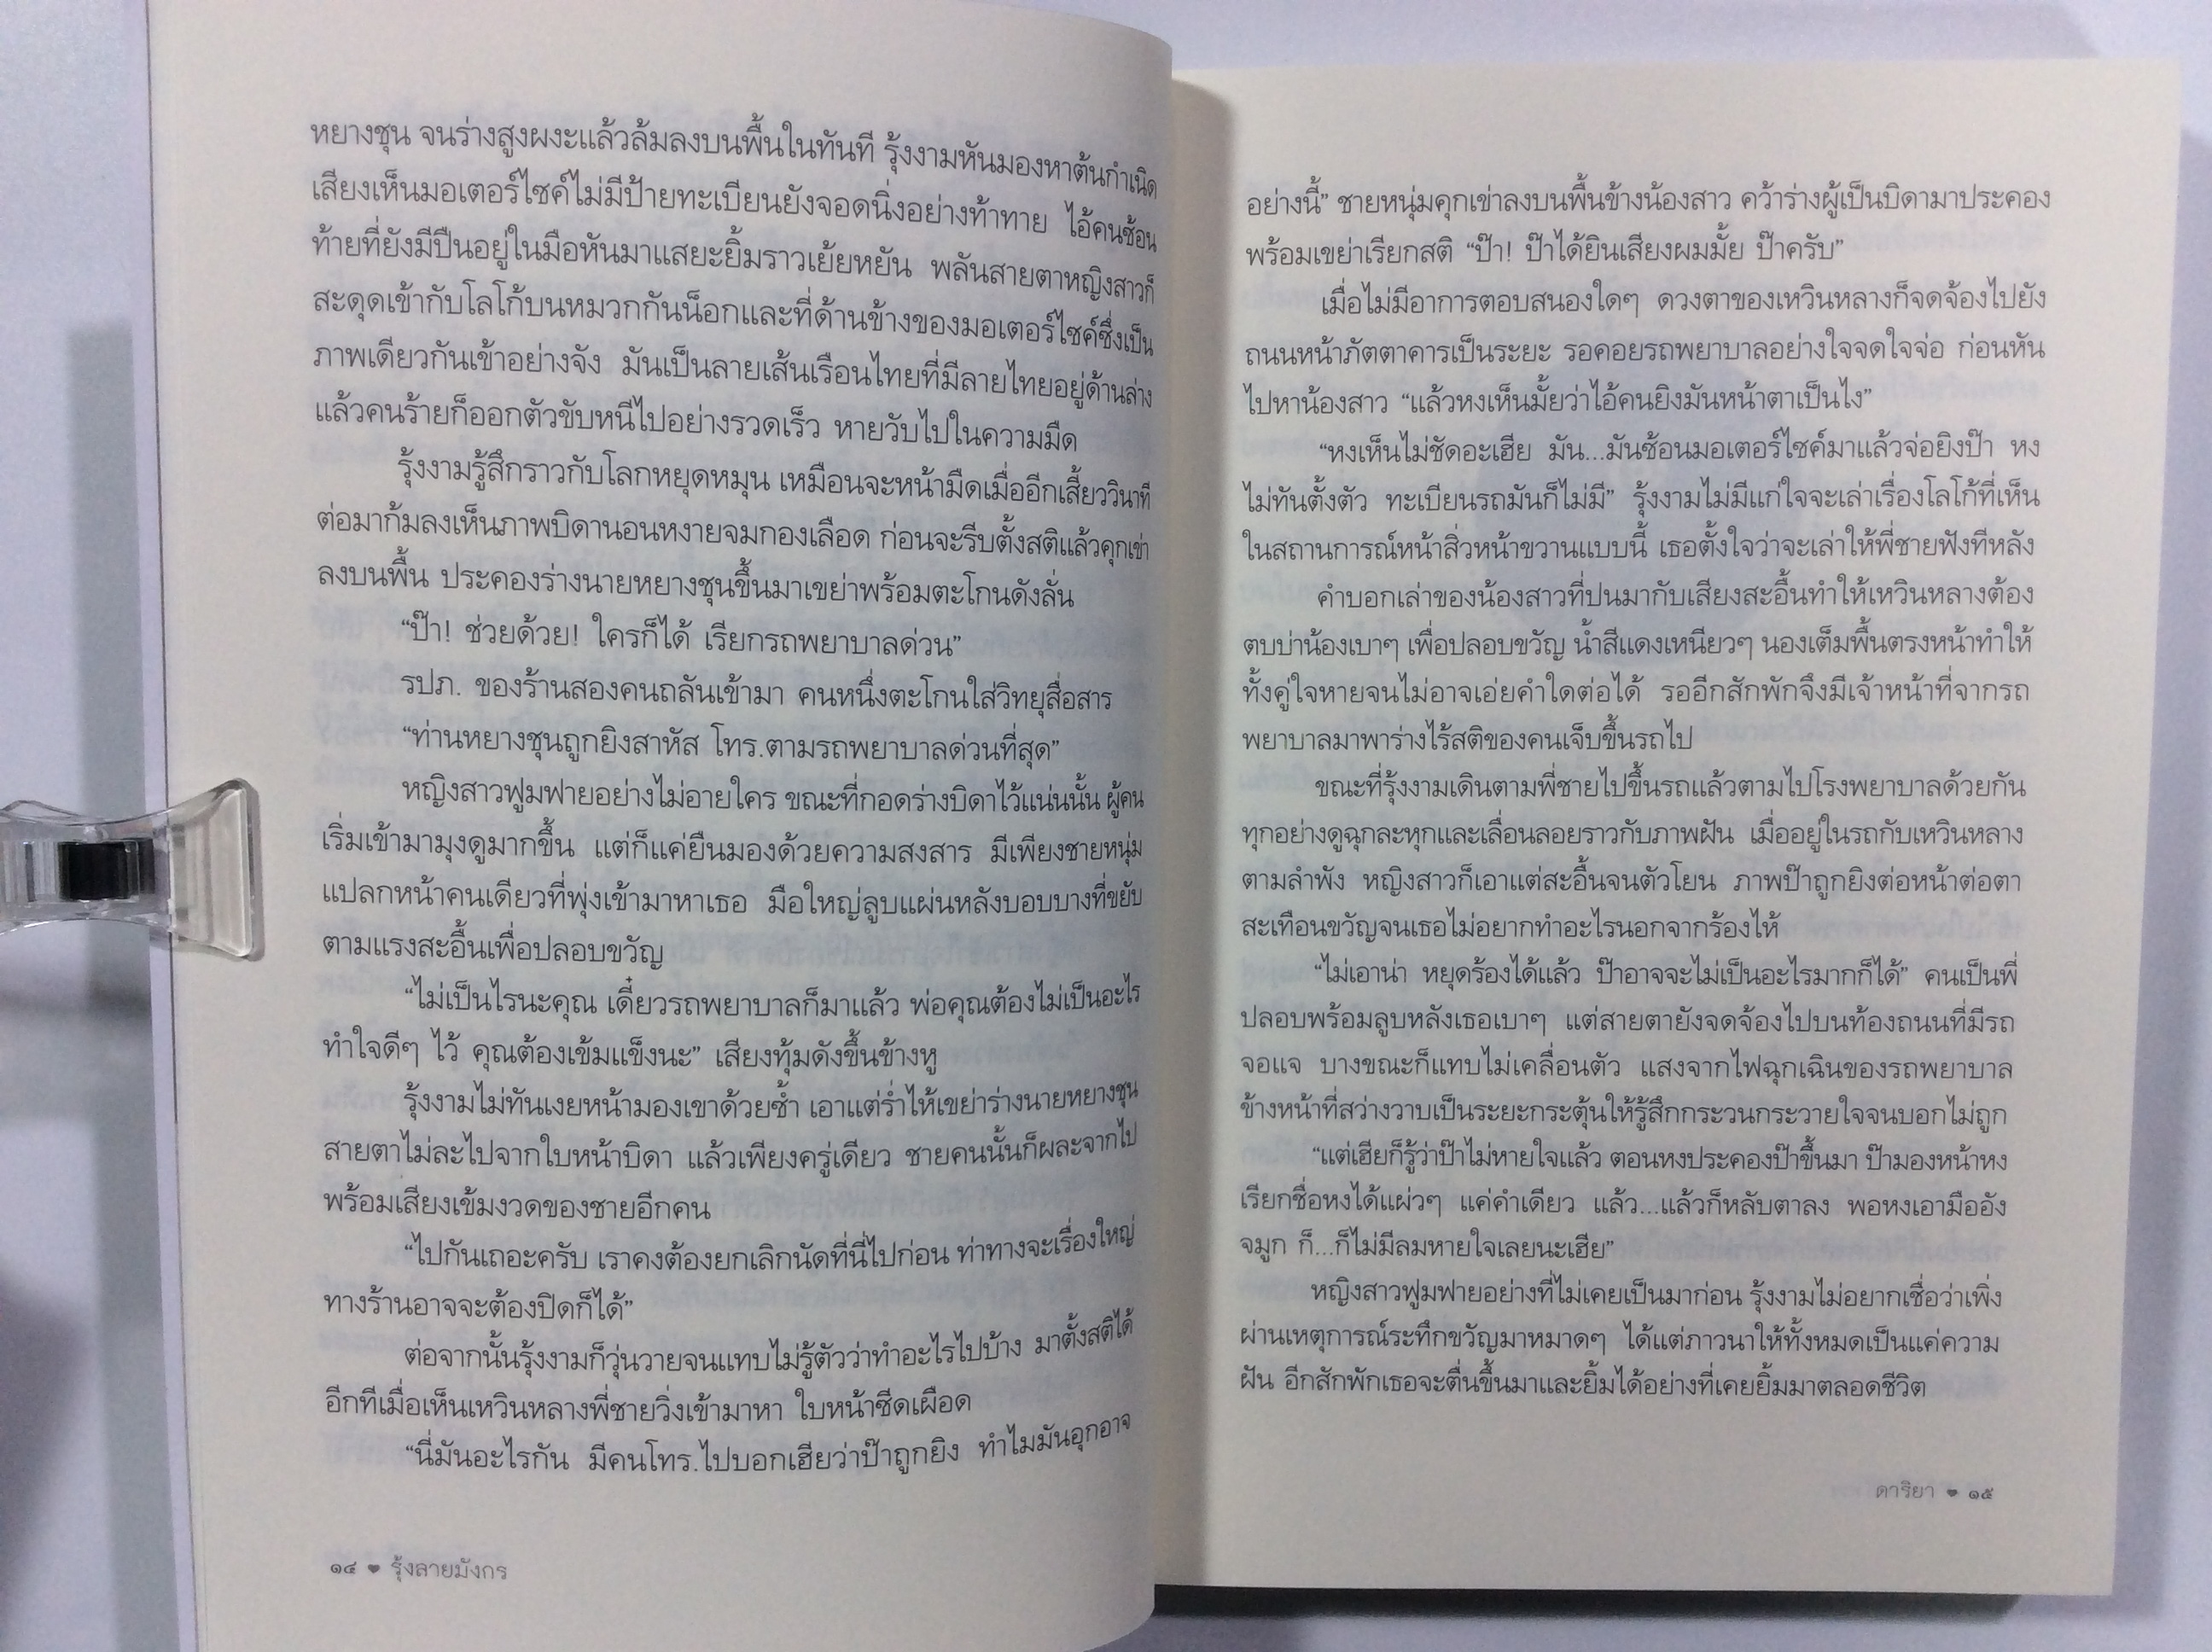 หยางชุน จนร่างสูงผงะแล้วล้มลงบนพื้นในทันที รุ้งงามหันมองหาต้นกำเนิด
เสียงเห็นมอเตอร์ไซค์ไม่มีป้ายทะเบียนยังจอดนิ่งอย่างท้าทาย ไอ้คนซ้อน
ท้ายที่ยังมีปืนอยู่ในมือหันมาแสยะยิ้มราวเย้ยหยัน พลันสายตาหญิงสาวก็
สะดุดเข้ากับโลโก้บนหมวกกันน็อกและที่ด้านข้างของมอเตอร์ไซค์ซึ่งเป็น
ภาพเดียวกันเข้าอย่างจัง มันเป็นลายเส้นเรือนไทยที่มีลายไทยอยู่ด้านล่าง
แล้วคนร้ายก็ออกตัวขับหนีไปอย่างรวดเร็ว หายวับไปในความมืด
รุ้งงามรู้สึกราวกับโลกหยุดหมุน เหมือนจะหน้ามืดเมื่ออีกเสี้ยววินาที
ต่อมาก้มลงเห็นภาพบิดานอนหงายจมกองเลือด ก่อนจะรีบตั้งสติแล้วคุกเข่า
ลงบนพื้น ประคองร่างนายหยางชุนขึ้นมาเขย่าพร้อมตะโกนดังลั่น
“ป๊า! ช่วยด้วย! ใครก็ได้ เรียกรถพยาบาลด่วน”
รปภ. ของร้านสองคนถลันเข้ามา คนหนึ่งตะโกนใส่วิทยุสื่อสาร
“ท่านหยางชุนถูกยิงสาหัส โทร.ตามรถพยาบาลด่วนที่สุด”
หญิงสาวฟูมฟายอย่างไม่อายใคร ขณะที่กอดร่างบิดาไว้แน่นนั้น ผู้คน
เริ่มเข้ามามุงดูมากขึ้น แต่ก็แค่ยืนมองด้วยความสงสาร มีเพียงชายหนุ่ม
แปลกหน้าคนเดียวที่พุ่งเข้ามาหาเธอ มือใหญ่ลูบแผ่นหลังบอบบางที่ขยับ
ตามแรงสะอื้นเพื่อปลอบขวัญ
“ไม่เป็นไรนะคุณ เดี๋ยวรถพยาบาลก็มาแล้ว พ่อคุณต้องไม่เป็นอะไร
ทำใจดีๆ ไว้ คุณต้องเข้มแข็งนะ” เสียงทุ้มดังขึ้นข้างหู
รุ้งงามไม่ทันเงยหน้ามองเขาด้วยซ้ำ เอาแต่ร่ำไห้เขย่าร่างนายหยางชุน
สายตาไม่ละไปจากใบหน้าบิดา แล้วเพียงครู่เดียว ชายคนนั้นก็ผละจากไป
พร้อมเสียงเข้มงวดของชายอีกคน
“ไปกันเถอะครับ เราคงต้องยกเลิกนัดที่นี่ไปก่อน ท่าทางจะเรื่องใหญ่
ทางร้านอาจจะต้องปิดก็ได้”
ต่อจากนั้นรุ้งงามก็วุ่นวายจนแทบไม่รู้ตัวว่าทำอะไรไปบ้าง มาตั้งสติได้
อีกทีเมื่อเห็นเหวินหลางพี่ชายวิ่งเข้ามาหา ใบหน้าซีดเผือด
“นี่มันอะไรกัน มีคนโทร.ไปบอกเฮียว่าป๊าถูกยิง ทำไมมันอุกอาจ
๑๔ ❤ รุ้งลายมังกร
อย่างนี้” ชายหนุ่มคุกเข่าลงบนพื้นข้างน้องสาว คว้าร่างผู้เป็นบิดามาประคอง
พร้อมเขย่าเรียกสติ “ป๊า! ป๊าได้ยินเสียงผมมั้ย ป๊าครับ”
เมื่อไม่มีอาการตอบสนองใดๆ ดวงตาของเหวินหลางก็จดจ้องไปยัง
ถนนหน้าภัตตาคารเป็นระยะ รอคอยรถพยาบาลอย่างใจจดใจจ่อ ก่อนหัน
ไปหาน้องสาว “แล้วหงเห็นมั้ยว่าไอ้คนยิงมันหน้าตาเป็นไง”
“หงเห็นไม่ชัดอะเฮีย มัน...มันซ้อนมอเตอร์ไซค์มาแล้วจ่อยิงป๊า หง
ไม่ทันตั้งตัว ทะเบียนรถมันก็ไม่มี” รุ้งงามไม่มีแก่ใจจะเล่าเรื่องโลโก้ที่เห็น
ในสถานการณ์หน้าสิ่วหน้าขวานแบบนี้ เธอตั้งใจว่าจะเล่าให้พี่ชายฟังทีหลัง
คำบอกเล่าของน้องสาวที่ปนมากับเสียงสะอื้นทำให้เหวินหลางต้อง
ตบบ่าน้องเบาๆ เพื่อปลอบขวัญ น้ำสีแดงเหนียวๆ นองเต็มพื้นตรงหน้าทำให้
ทั้งคู่ใจหายจนไม่อาจเอ่ยคำใดต่อได้ รออีกสักพักจึงมีเจ้าหน้าที่จากรถ
พยาบาลมาพาร่างไร้สติของคนเจ็บขึ้นรถไป
ขณะที่รุ้งงามเดินตามพี่ชายไปขึ้นรถแล้วตามไปโรงพยาบาลด้วยกัน
ทุกอย่างดูฉุกละหุกและเลื่อนลอยราวกับภาพฝัน เมื่ออยู่ในรถกับเหวินหลาง
ตามลำพัง หญิงสาวก็เอาแต่สะอื้นจนตัวโยน ภาพป๊าถูกยิงต่อหน้าต่อตา
สะเทือนขวัญจนเธอไม่อยากทำอะไรนอกจากร้องไห้
“ไม่เอาน่า หยุดร้องได้แล้ว ป๊าอาจจะไม่เป็นอะไรมากก็ได้” คนเป็นพี่
ปลอบพร้อมลูบหลังเธอเบาๆ แต่สายตายังจดจ้องไปบนท้องถนนที่มีรถ
จอแจ บางขณะก็แทบไม่เคลื่อนตัว แสงจากไฟฉุกเฉินของรถพยาบาล
ข้างหน้าที่สว่างวาบเป็นระยะกระตุ้นให้รู้สึกกระวนกระวายใจจนบอกไม่ถูก
“แต่เฮียก็รู้ว่าป๊าไม่หายใจแล้ว ตอนหงประคองป๊าขึ้นมา ป๊ามองหน้าหง
เรียกชื่อหงได้แผ่วๆ แค่คำเดียว แล้ว...แล้วก็หลับตาลง พอหงเอามืออัง
จมูก ก็...ก็ไม่มีลมหายใจเลยนะเฮีย”
หญิงสาวฟูมฟายอย่างที่ไม่เคยเป็นมาก่อน รุ้งงามไม่อยากเชื่อว่าเพิ่ง
ผ่านเหตุการณ์ระทึกขวัญมาหมาดๆ ได้แต่ภาวนาให้ทั้งหมดเป็นแค่ความ
ฝัน อีกสักพักเธอจะตื่นขึ้นมาและยิ้มได้อย่างที่เคยยิ้มมาตลอดชีวิต
ดาริยา ❤ ๑๕